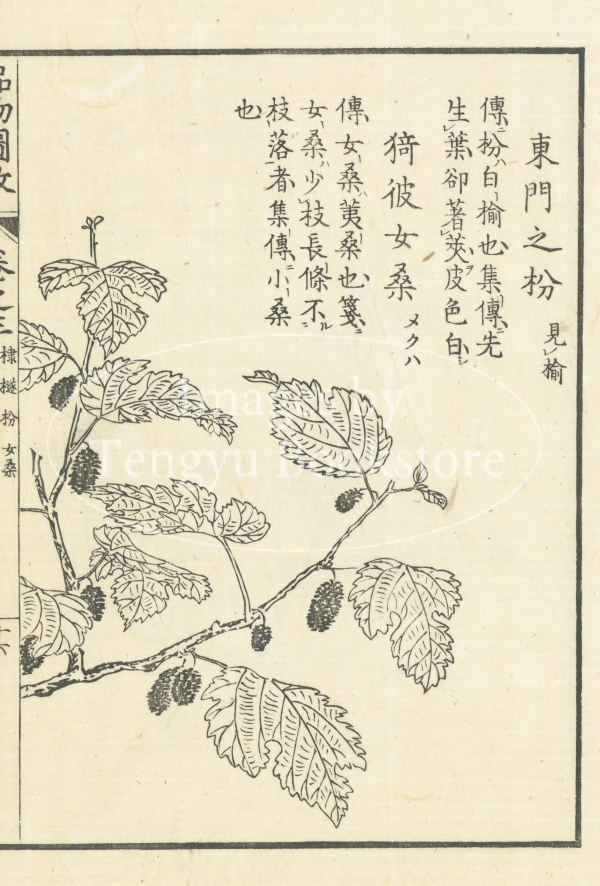 東門之枌 見㆑楡
傳ニ枌ハ白楡也集傳ニ先
生㆑葉卻著㆑莢ヲ皮色白シ
猗彼女桑 メクハ
傳女桑ハ荑桑也箋ニ
女桑ハ少㆑枝長條不ル㆓
枝落㆒者集傳ニ小桑
也
品物圖攷
卷之三
棣 檖 枌 女桑
十六
Images by
Tengyu Bookstore